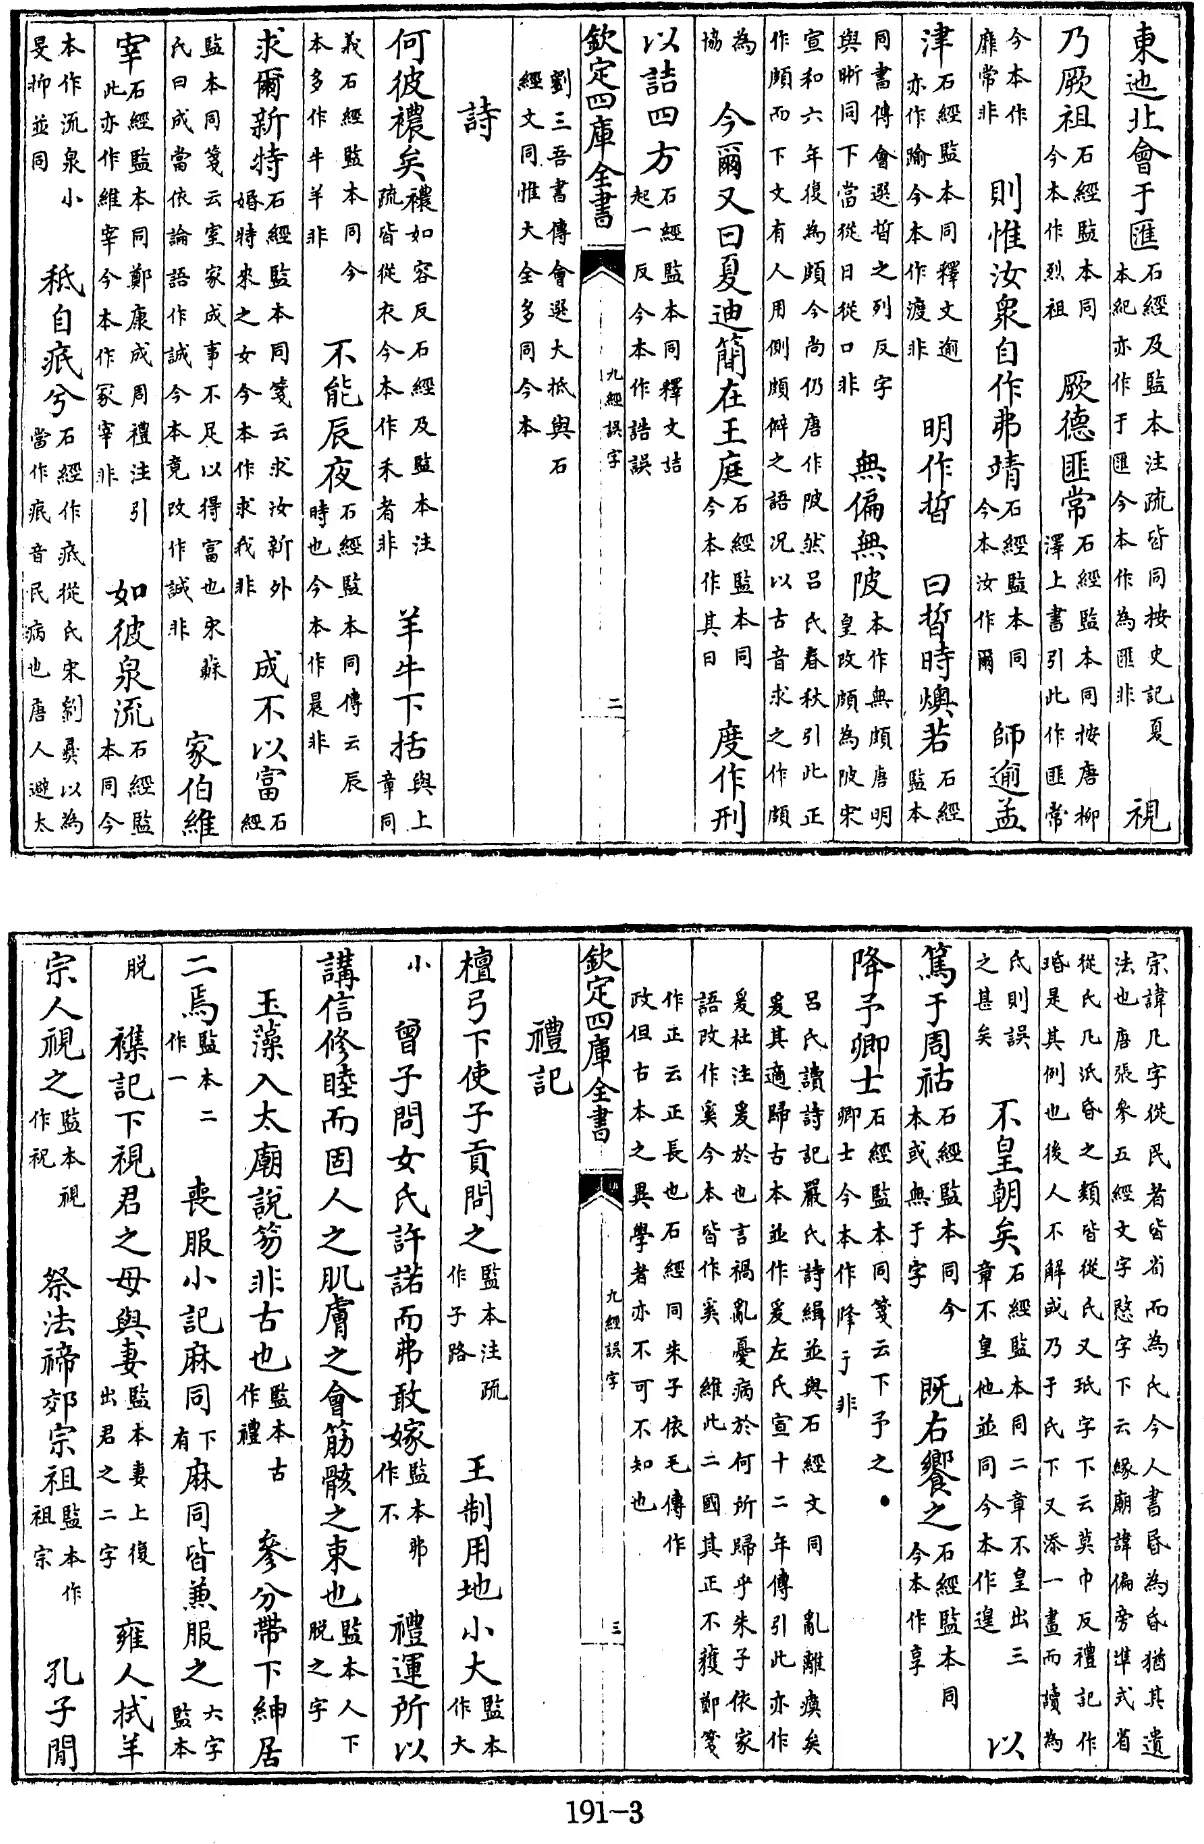 東迆北會于匯石經及監本注疏皆同按史記夏本紀亦作于匯今本作為匯非 視
乃厥祖石經監本同今本作烈祖 厥德匪常石經監本同按唐柳澤上書引此作匪常
今本作靡常非 則惟汝衆自作弗靖石經監本同今本汝作爾 師逾孟
津石經監本同釋文逾亦作踰今本作渡非 明作晢 曰晢時燠若石經監本
同書傳會選晢之列反字與晣同下當從日從口非 無偏無陂本作無頗唐明皇改頗為陂宋
宣和六年復為頗今尚仍唐作陂然呂氏春秋引此正作頗而下文有人用側頗僻之語况以古音求之作頗
為協 今爾又曰夏迪簡在王庭石經監本同今本作其曰 度作刑
以詰四方石經監本同釋文詰起一反今本作誥誤
欽定四庫全書 九經誤字 二
劉三吾書傳會選大抵與石經文同惟大全多同今本
詩
何彼襛矣襛如容反石經及監本注疏皆從衣今本作禾者非 羊牛下括與上章同
義石經監本同今本多作牛羊非 不能辰夜石經監本同傳云辰時也今本作晨非
求爾新特石經監本同箋云求汝新外婚特來之女今本作求我非 成不以富石經
監本同箋云室家成事不足以得富也宋蘇氏曰成當依論語作誠今本竟改作誠非 家伯維
宰石經監本同鄭康成周禮注引此亦作維宰今本作冢宰非 如彼泉流石經監本同今
本作流泉小旻抑並同 秪自疧兮石經作疧從氏宋劉彛以為當作音民病也唐人避太
宗諱凡字從民者皆省而為氏今人書昏為昏猶其遺法也唐張參五經文字愍字下云緣廟諱偏旁準式省
從氏凡泜昏之類皆從氏又珉字下云莫巾反禮記作㛰是其例也後人不解或乃于氏下又添一畫而讀為
氐則誤之甚矣 不皇朝矣石經監本同二章不皇出三章不皇他並同今本作遑 以
篤于周祜石經監本同今本或無于字 既右饗之石經監本同今本作享
降予卿士石經監本同箋云下予之卿士今本作降于非
呂氏讀詩記嚴氏詩緝並與石經文同 亂離瘼矣爰其適歸古本並作爰左氏宣十二年傳引此亦作
爰杜注爰於也言禍亂憂病於何所歸乎朱子依家語改作奚今本皆作奚 維此二國其正不獲鄭箋
作正云正長也石經同朱子依毛傳作政但古本之異學者亦不可不知也
欽定四庫全書 九經誤字 三
禮記
檀弓下使子貢問之監本注疏作子路 王制用地小大監本作大
小 曾子問女氏許諾而弗敢嫁監本弗作不 禮運所以
講信修睦而固人之肌膚之會筋骸之束也監本人下脫之字
玉藻入太廟說笏非古也監本古作禮 參分帶下紳居
二焉監本二作一 喪服小記麻同下麻同皆兼服之六字監本有
脫 襍記下視君之母與妻監本妻上復出君之二字 雍人拭羊
宗人視之監本視作祝 祭法禘郊宗祖監本作祖宗 孔子閒
191-3